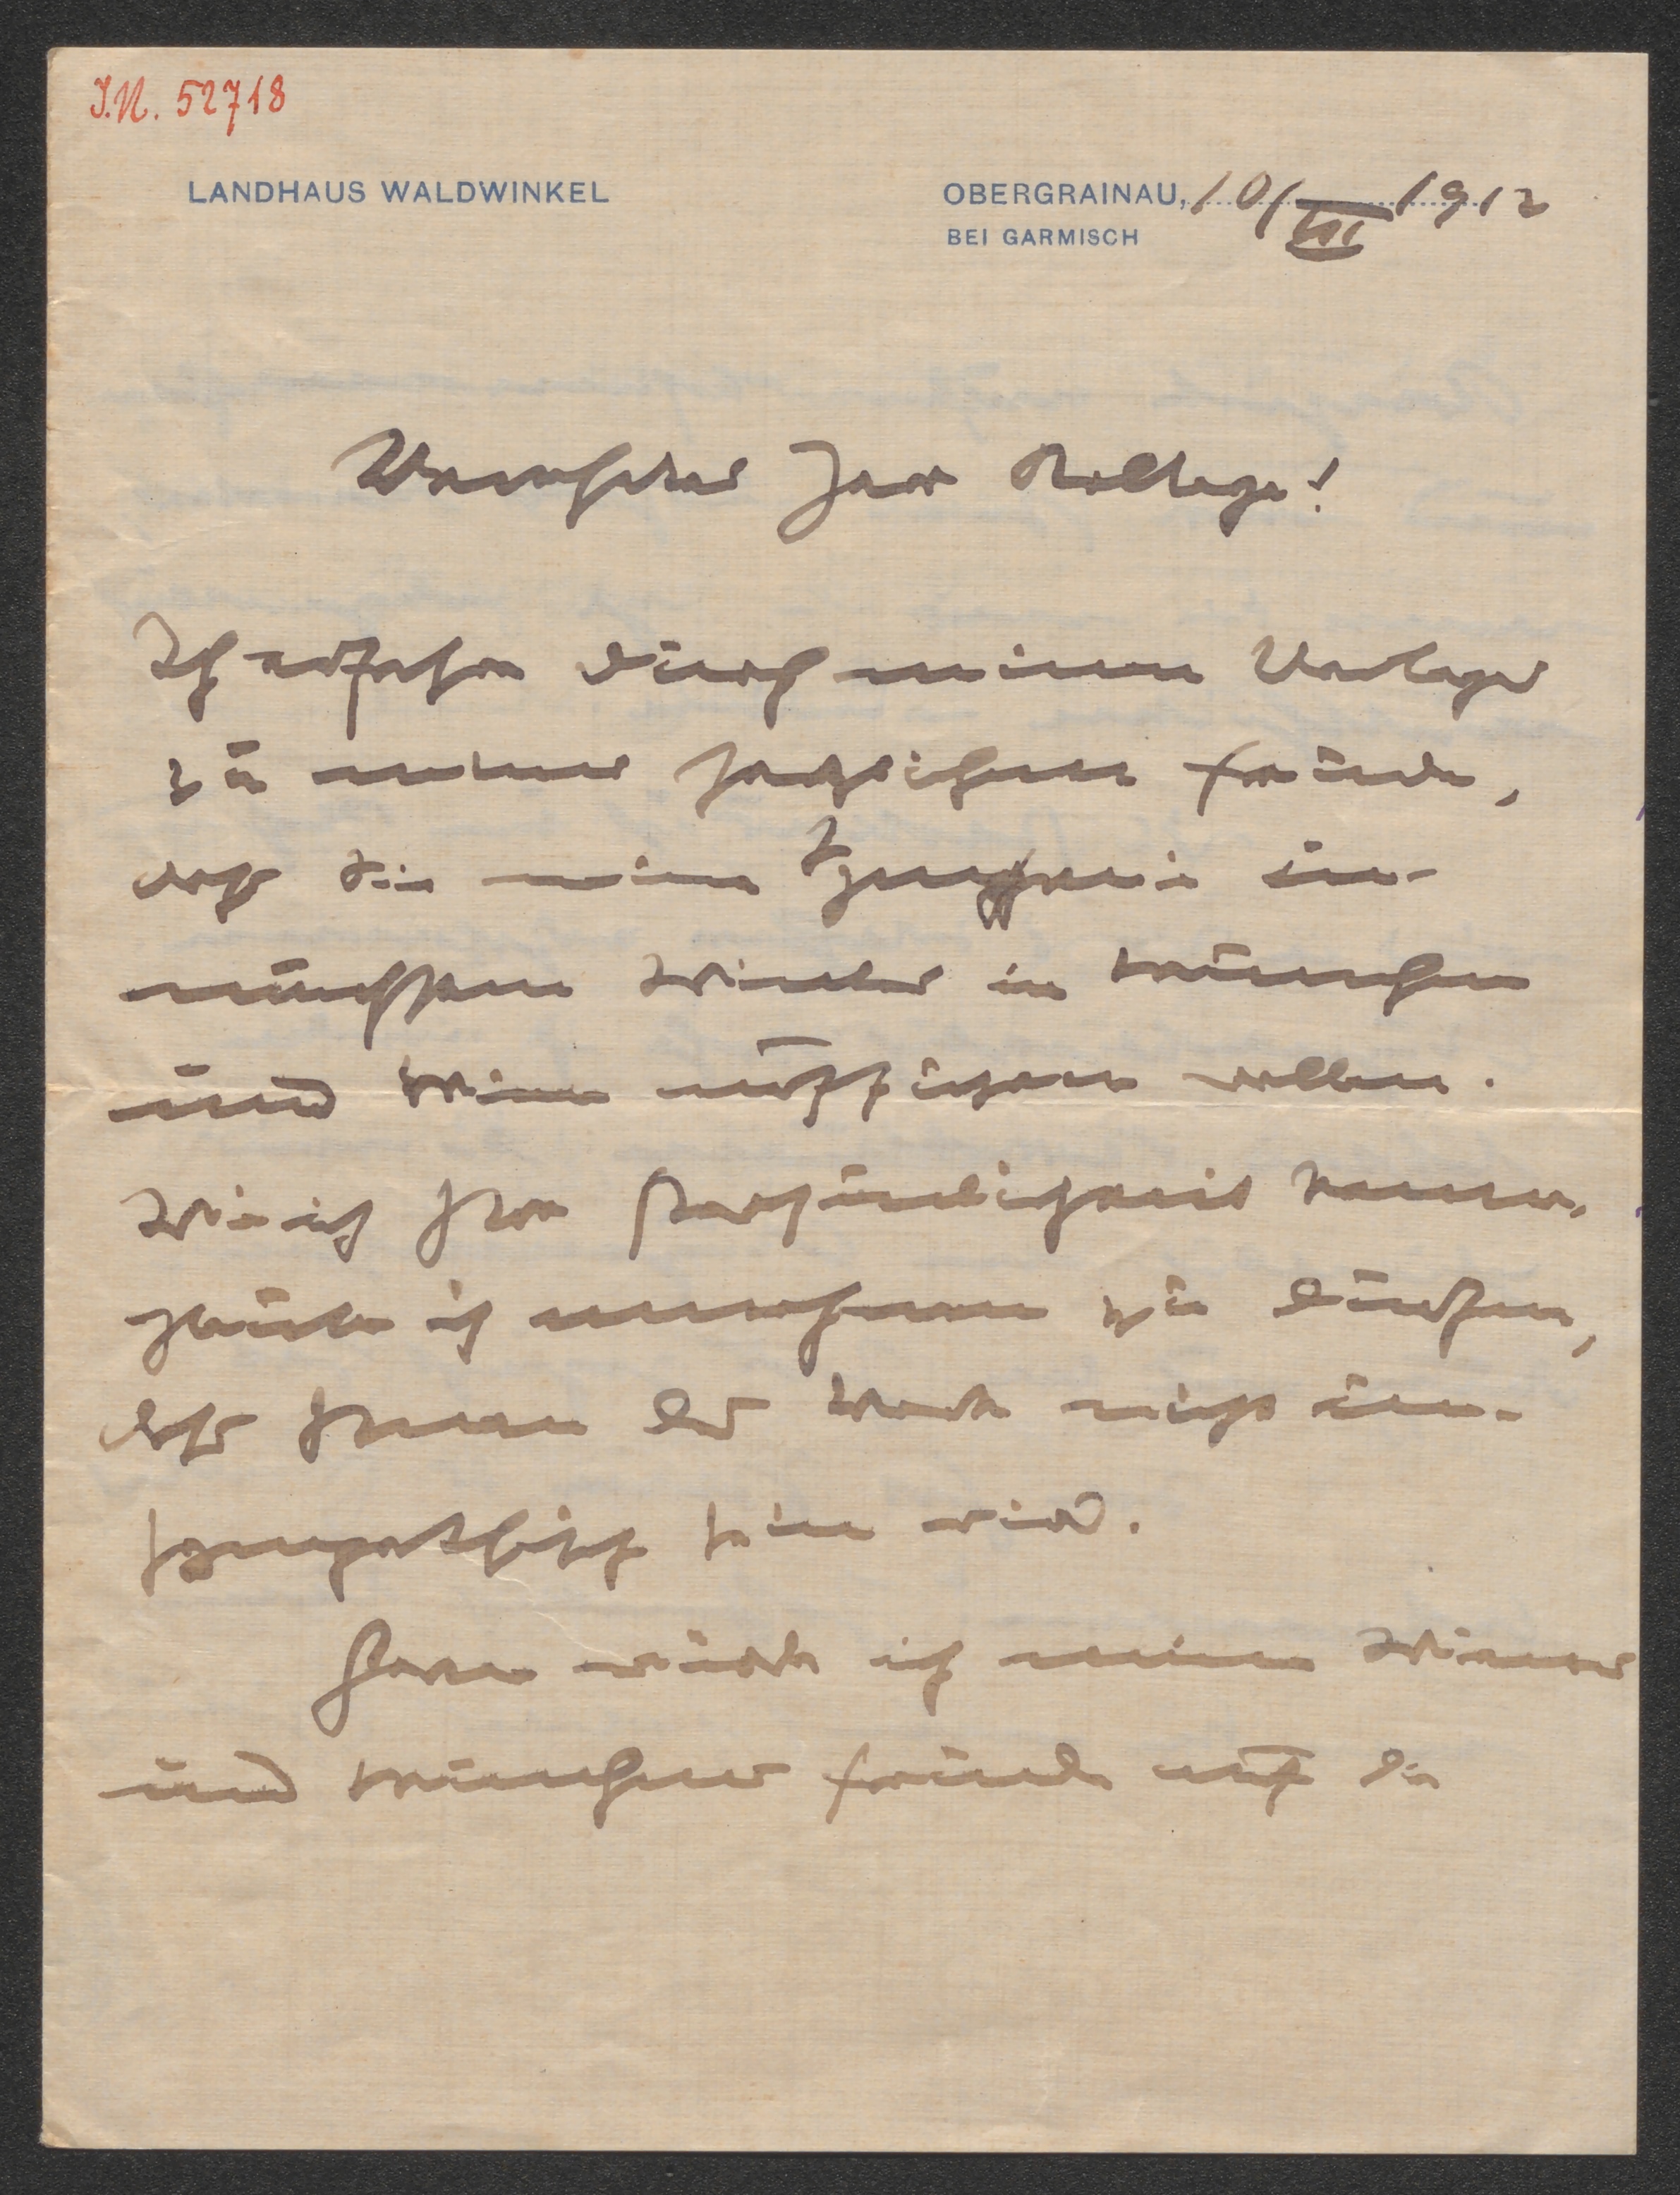 I.N. 52718
LANDHAUS WALDWINKEL
OBERGRAINAU, 10/VII 1912
BEI GARMISCH
Verehrter Herr Kollege!
Ich erfahre durch meinen Verleger
zu meiner herzlichen Freude,
daß Sie meine Symphonie im
nächsten Winter in München
und Wien aufführen wollen.
Wie ich Ihre Persönlichkeit kenne,
glaube ich annehmen zu dürfen,
daß Ihnen das Werk nicht un-
sympathisch sein wird.
Gern würde ich meine Wiener
und Münchner Freunde auf die